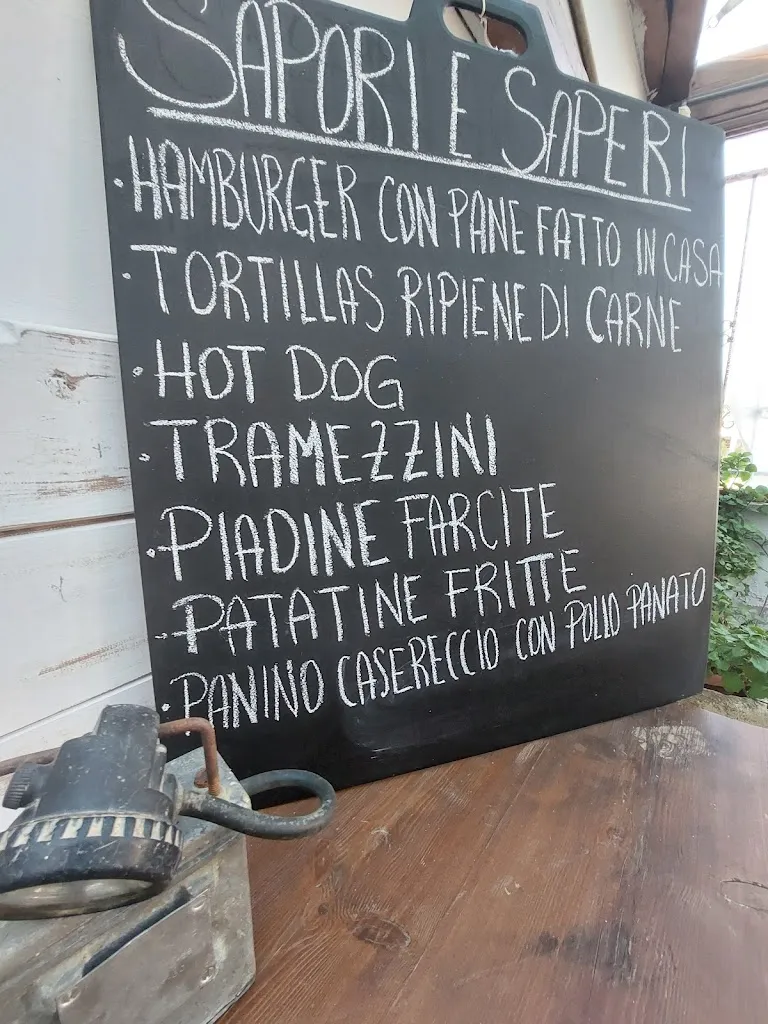 SAPORI E SAPERI
· HAMBURGER CON PANE FATTO IN CASA
· TORTILLAS RIPIENE DI CARNE
· HOT DOG
· TRAMEZZINI
· PIADINE FARCITE
· PATATINE FRITTE
· PANINO CASERECCIO CON POLLO PANATO